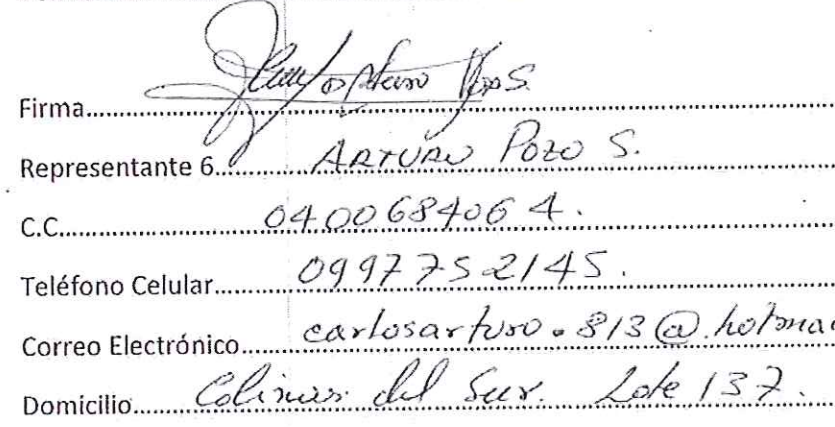 Firma
Representante 6 ARTURO POZO S.
C.C. 0400684064.
Teléfono Celular 0997752145.
Correo Electrónico carlosarturo.813@hotmai
Domicilio Colinas del Sur. Lote 137.